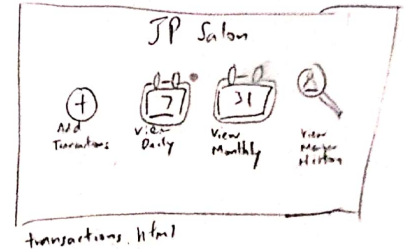 JP Salon
+
Add
Transactions
7
View
Daily
31
View
Monthly
View
History
transactions.html